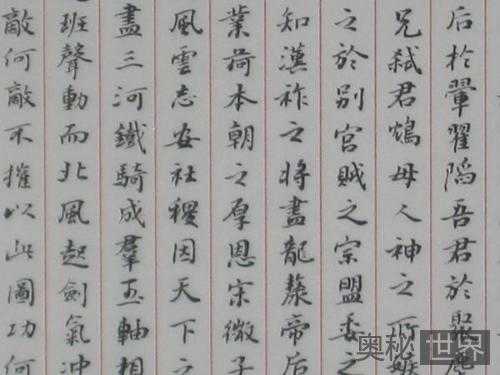 后於翬翟陷吾君於聚麀
兄弒君鴆母人神之所嫉
之於别宮賊之宗盟委之
知漢祚之將盡龍漦帝后
業荷本朝之厚恩宋微子
風雲志安社稷因天下之
盡三河鐵騎成羣玉軸相
班聲動而北風起劍氣沖
敵何敵不摧以此圖功何
奥秘世界